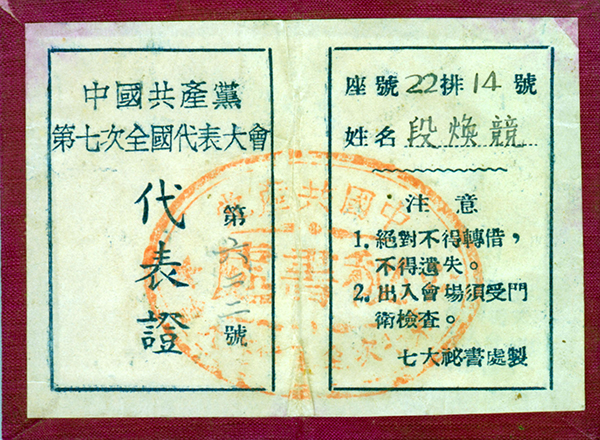 中國共產黨
第七次全國代表大會
代表證
第六二二號
座號22排14號
姓名段煥競
注意
1. 絕對不得轉借，
不得遺失。
2. 出入會場須受門
衛檢查。
七大祕書處製
中國共產黨
祕書處